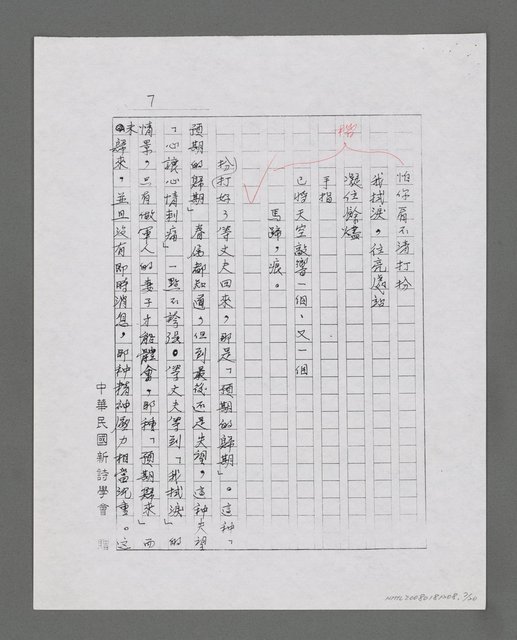 7
楷
怕你看不清打扮
我拭淚，往亮處站
凝住餘燼
手指
已將天空敲響一個、又一個
馬蹄，痕。
扮(打好)等丈夫回來，那是「預期的歸期」。這种「
預期的歸期」眷属都知道，但到最後还是失望，這种失望
「心讓心情刺痛」一點不誇張。等丈夫等到「我拭淚」的
情景，只有做軍人的妻子才能體會，那種「預期歸來」而
未歸來，並且没有即時消息，那种精神壓力相當沉重。这
中華民國新詩學會
NMTL20080180208. 7/20